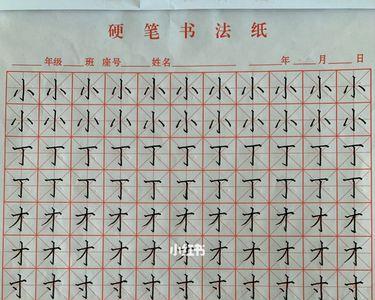 硬笔书法纸
年级 班 座号 姓名 年 月 日
小小小小小小小小小小小
小小小小小小小小小小小
丁丁丁丁丁丁丁丁丁丁丁
丁丁丁丁丁丁丁丁丁丁丁
才才才才才才才才才才才
才才才才才才才才才才才
小红书
寸寸寸寸寸寸寸寸寸寸寸